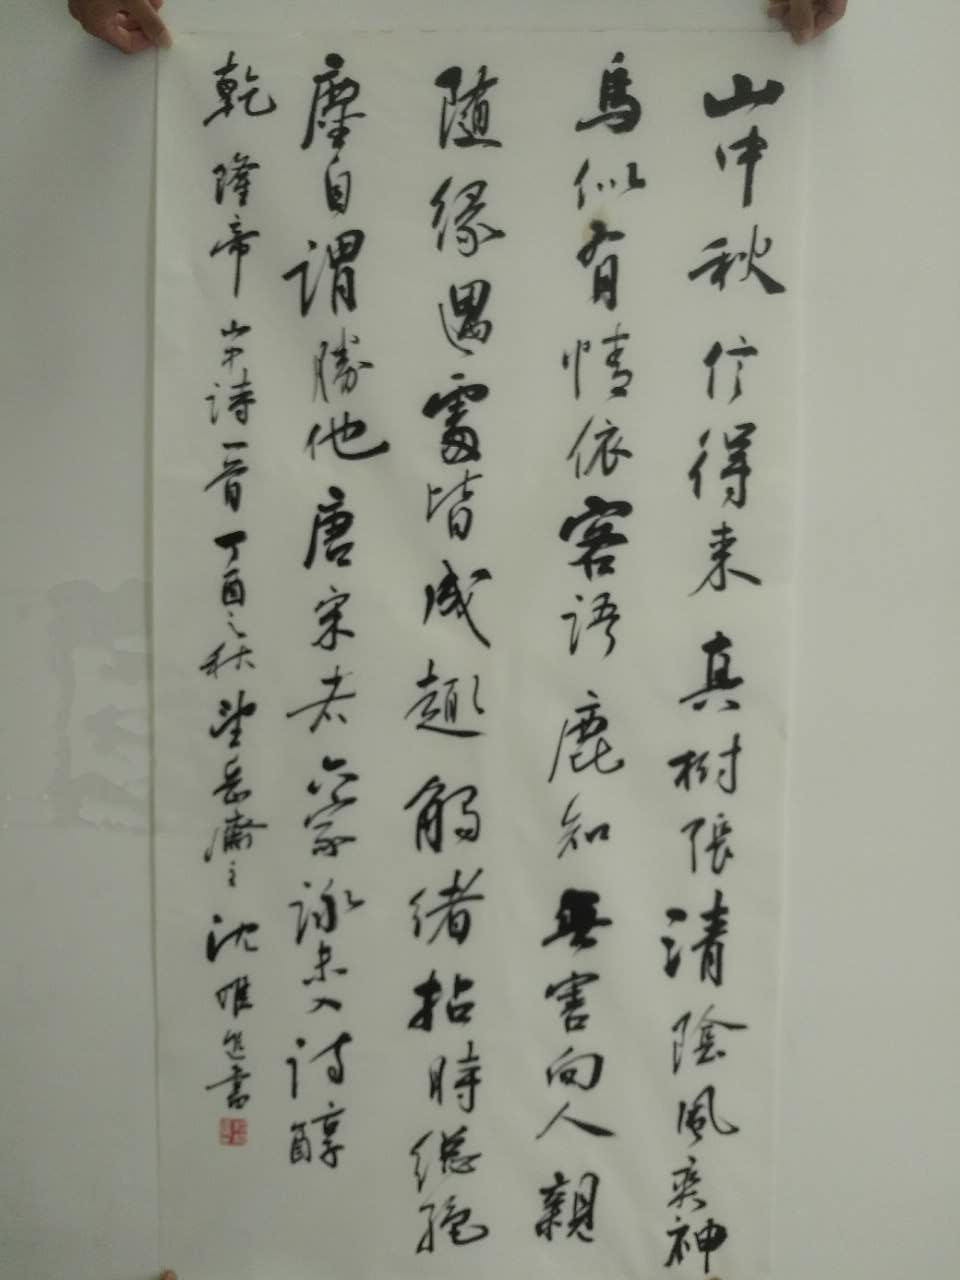 山中秋信得来真樹張清陰風爽神
鳥似有情依客語鹿知無害向人親
随缘遇處皆成趣觸绪拈時總绝
塵自謂勝他唐宋者六家詠未入詩醇
乾隆帝山中詩一首丁酉之秋望岳齋主沈惟進書